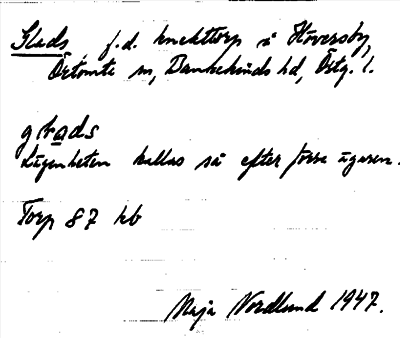 Glads, f.d. knekttorp å Höversby,
Örtomta sn, Bankekinds hd, Östg. l.
glads
Lägenheten kallas så efter förre ägaren.
Torp 87 kb
Maja Nordlund 1947.